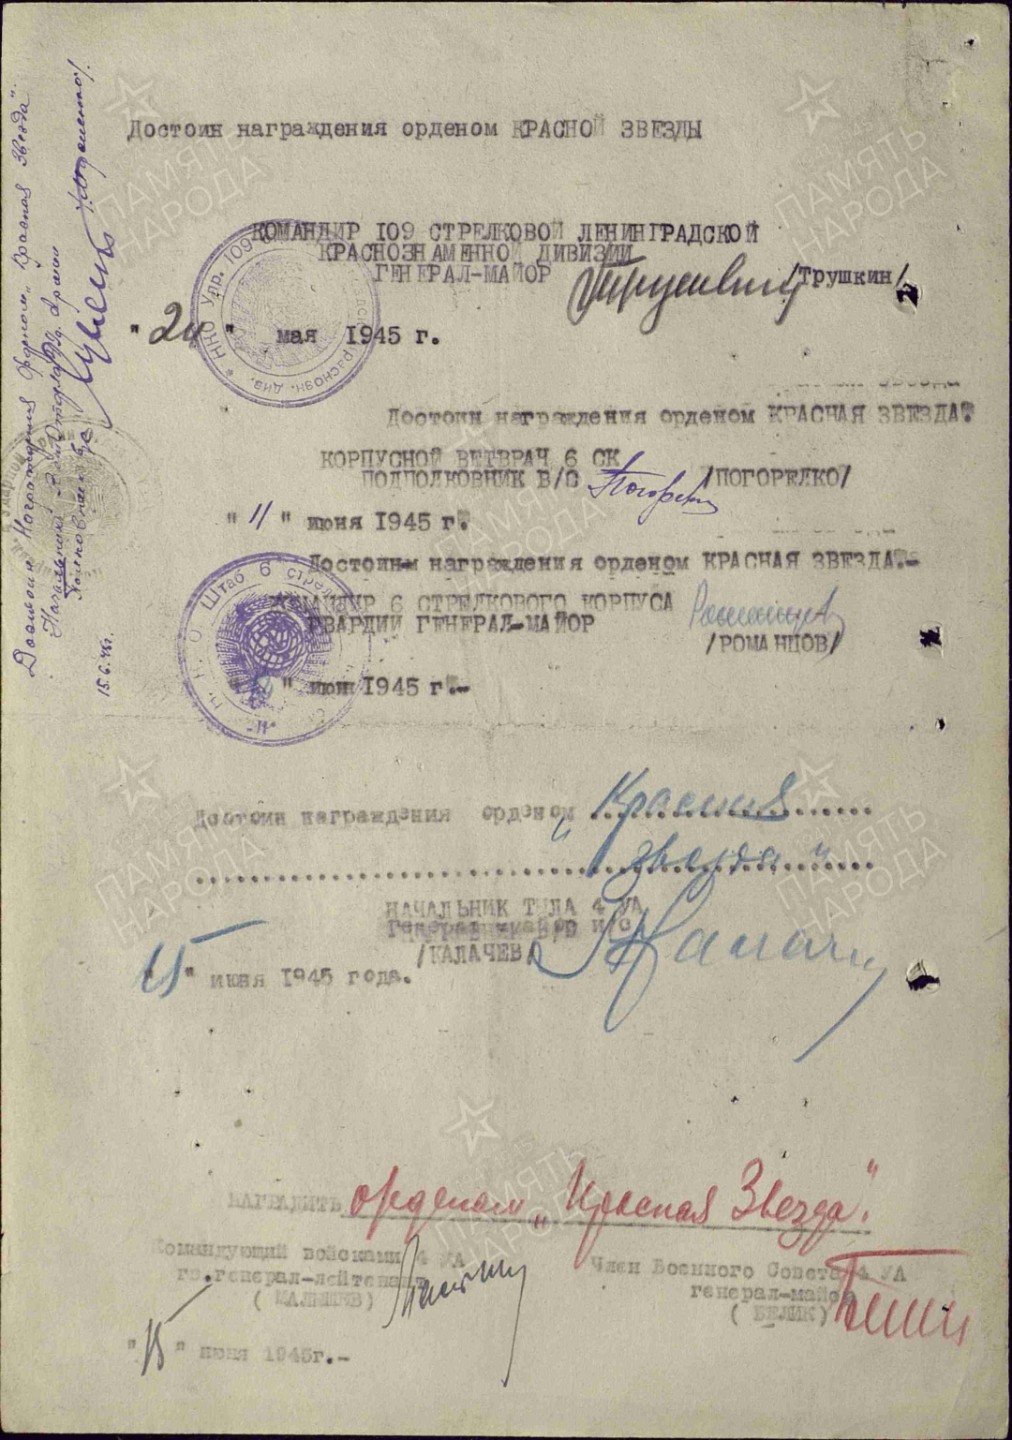 Достоин награждения орденом КРАСНОЙ ЗВЕЗДЫ
КОМАНДИР 109 СТРЕЛКОВОЙ ЛЕНИНГРАДСКОЙ
КРАСНОЗНАМЕННОЙ ДИВИЗИИ
ГЕНЕРАЛ-МАЙОР /Трушкин/
" " мая 1945 г.
Достоин награждения орденом КРАСНАЯ ЗВЕЗДА.
КОРПУСНОЙ ВЕТВРАЧ 6 СК
ПОДПОЛКОВНИК В/С /ПОГОРЕЛКО/
" 11 " июня 1945 г.
Достоин награждения орденом КРАСНАЯ ЗВЕЗДА.-
КОМАНДИР 6 СТРЕЛКОВОГО КОРПУСА
ГВАРДИИ ГЕНЕРАЛ-МАЙОР
/РОМАНЦОВ/
" июня 1945 г.-
Достоин награждения орденом „Красная
звезда"
НАЧАЛЬНИК ТЫЛА 4 УА
Генерал-майор и/с
/КАЛАЧЕВ/
"15" июня 1945 года.
НАГРАДИТЬ орденом „Красная Звезда".
Командующий войсками 4 УА
гв.генерал-лейтенант
( МАЛЫШЕВ)
Член Военного Совета 4 УА
генерал-майор
( БЕЛИК)
"15" июня 1945г.-
Достоин Награждения Орденом „Красная Звезда".
15.6.45г.
Штаб 6 стрел
ПАМЯТЬ
НАРОДА
ПАМЯТЬ
НАРОДА
ПАМЯТЬ
НАРОДА
ПАМЯТЬ
НАРОДА
ПАМЯТЬ
НАРОДА
ПАМЯТЬ
НАРОДА